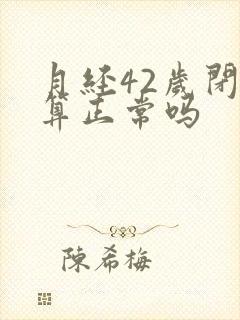 月经42歲閉
算正常吗
陳希梅